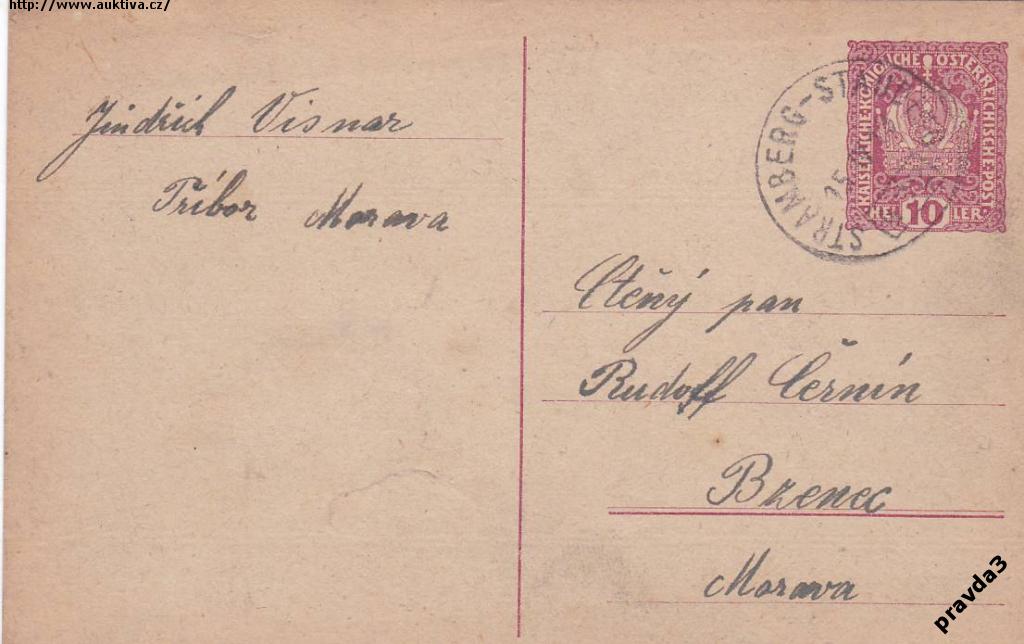 http://www.auktiva.cz/
Jindřich Visnar
Příbor Morava
KAISERLICHE-KÖNIGLICHE ÖSTERREICHISCHE-POST
HELLER
10
STRAMBERG-
Ctěný pan
Rudolf Černín
Bzenec
Morava
pravda3